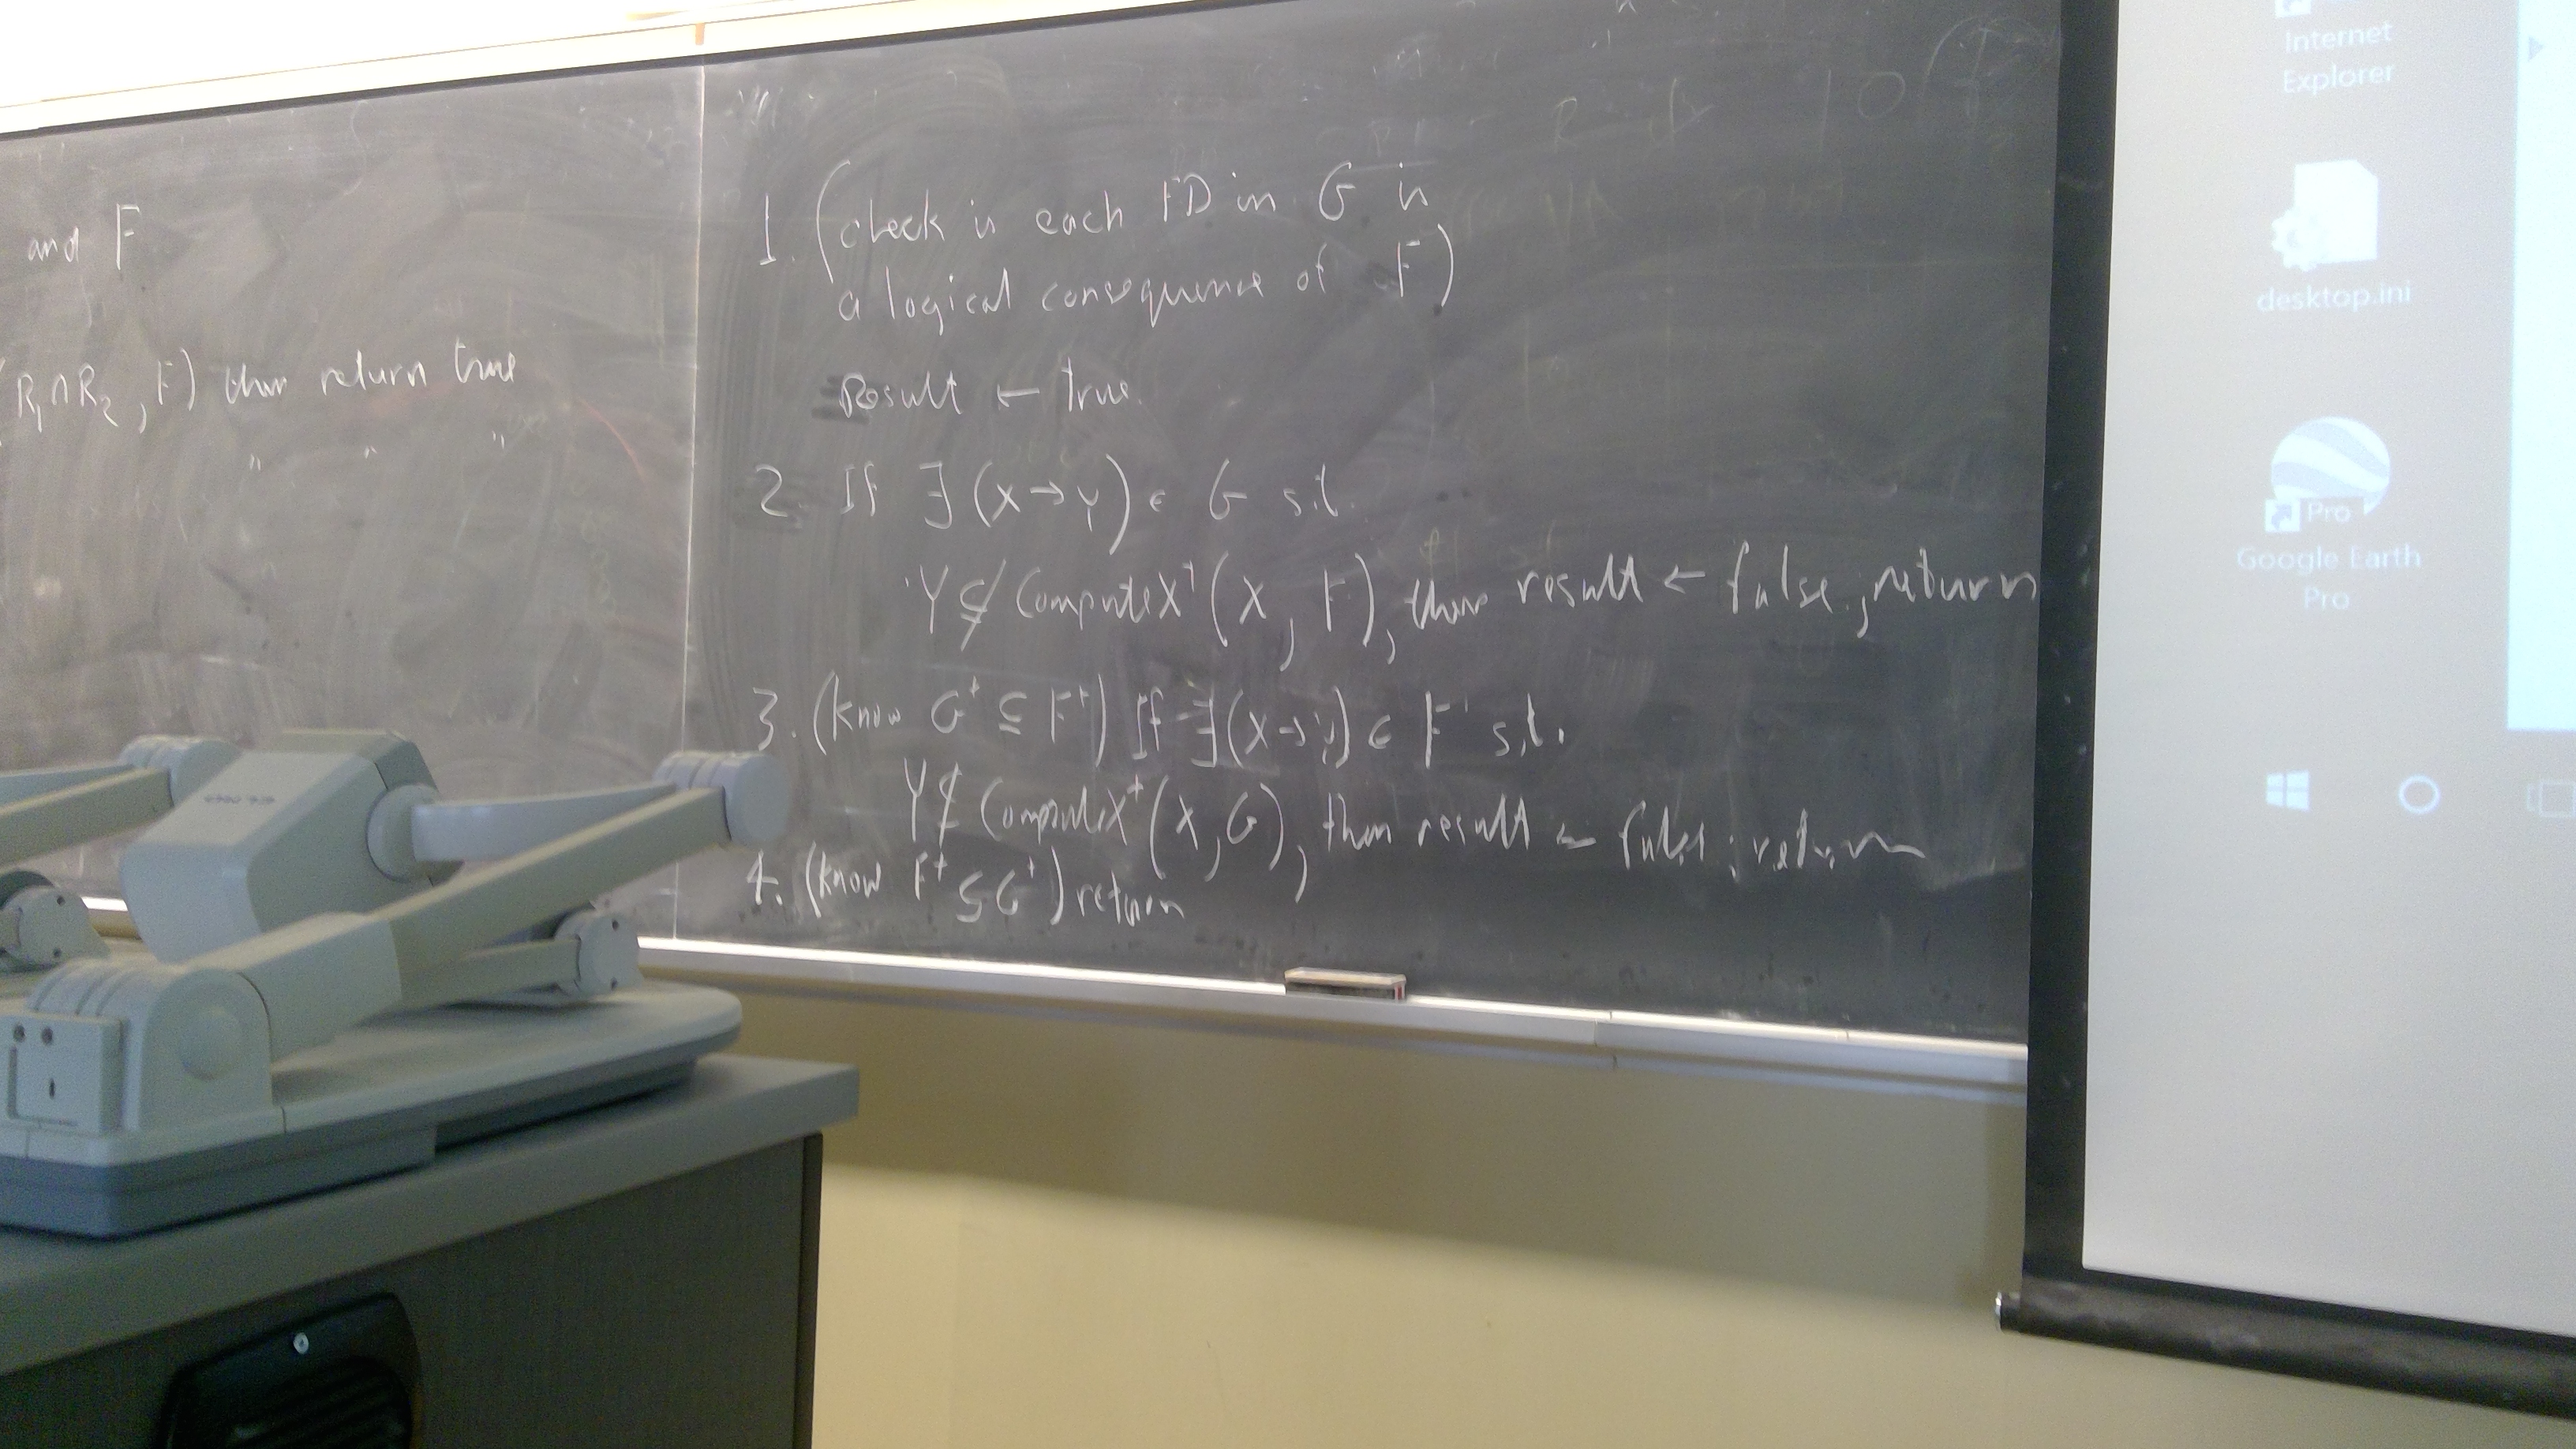 and F
R₁∩R₂, F) then return true
" " "
1. (check is each FD in G is
a logical consequence of F)
Result ← true.
2. If ∃ (X→Y) ∈ G s.t.
Y ⊈ ComputeX⁺(X, F), then result ← false; return
3. (know G⁺ ⊆ F⁺) If ∃(X→Y) ∈ F s.t.
Y ⊈ ComputeX⁺(X, G), then result ← false; return
4. (know F⁺ ⊆ G⁺) return
Internet
Explorer
desktop.ini
Pro
Google Earth
Pro